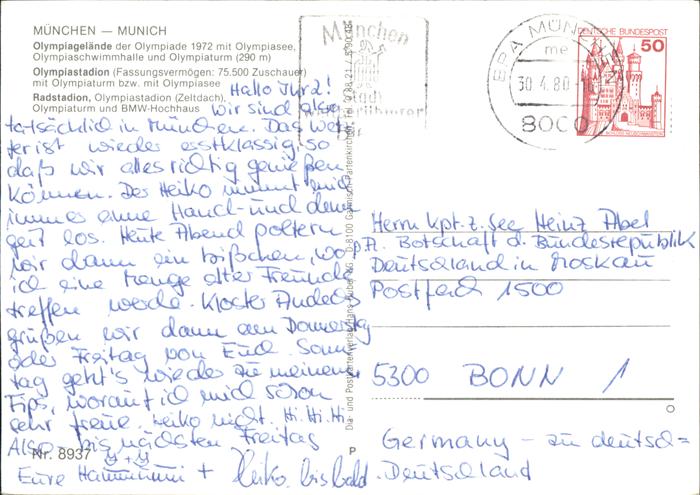 MÜNCHEN — MUNICH
Olympiagelände der Olympiade 1972 mit Olympiasee,
Olympiaschwimmhalle und Olympiaturm (290 m)
Olympiastadion (Fassungsvermögen: 75.500 Zuschauer)
mit Olympiaturm bzw. mit Olympiasee
Radstadion, Olympiastadion (Zeltdach),
Olympiaturm und BMW-Hochhaus
Hallo Ihr 2!
Wir sind also
tatsächlich in München. Das Wet-
ter ist wieder erstklassig, so
daß wir alles richtig genießen
können. Der Heiko nimmt mich
immer ohne Hand- und
los. Heute Abend poltern
wir dann ein bißchen, wo
ich eine Menge alter Freunde
treffen werde. Kloster Andechs
grüßen wir dann am Donnerstag
oder Freitag von Euch. Sonn-
tag geht's wieder zu meinem
Fips, worauf ich mich schon
sehr freue, Heiko nicht. Hi. Hi. Hi.
Also - bis nächsten Freitag
Nr. 8937
Eure + Heiko. bis bald.
P
München
Stadt
EPA MÜNCHEN
me
30.4.80
8000
DEUTSCHE BUNDESPOST
50
Herrn Kpt. z. See Heinz Abel
p.A. Botschaft d. Bundesrepublik
Deutschland in Moskau
Postfach 1500
5300 BONN 1
Germany - zu deutsch =
Deutschland